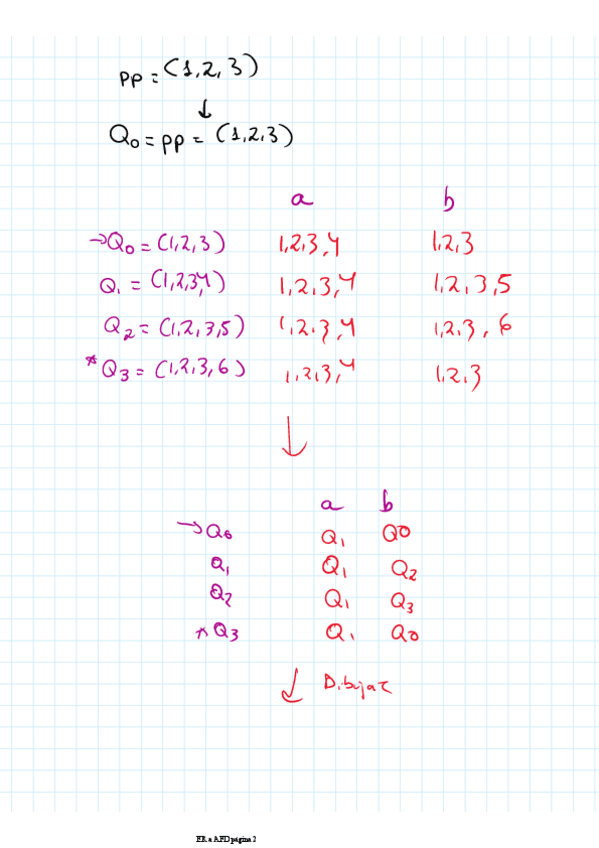 PP = (1,2,3)
↓
Q0 = PP = (1,2,3)
a b
→Q0 = (1,2,3) 1,2,3,4 1,2,3
Q1 = (1,2,3,4) 1,2,3,4 1,2,3,5
Q2 = (1,2,3,5) 1,2,3,4 1,2,3,6
*Q3 = (1,2,3,6) 1,2,3,4 1,2,3
↓
a b
→Q0 Q1 Q0
Q1 Q1 Q2
Q2 Q1 Q3
*Q3 Q1 Q0
↓ Dibujar
ER a AFD página 2